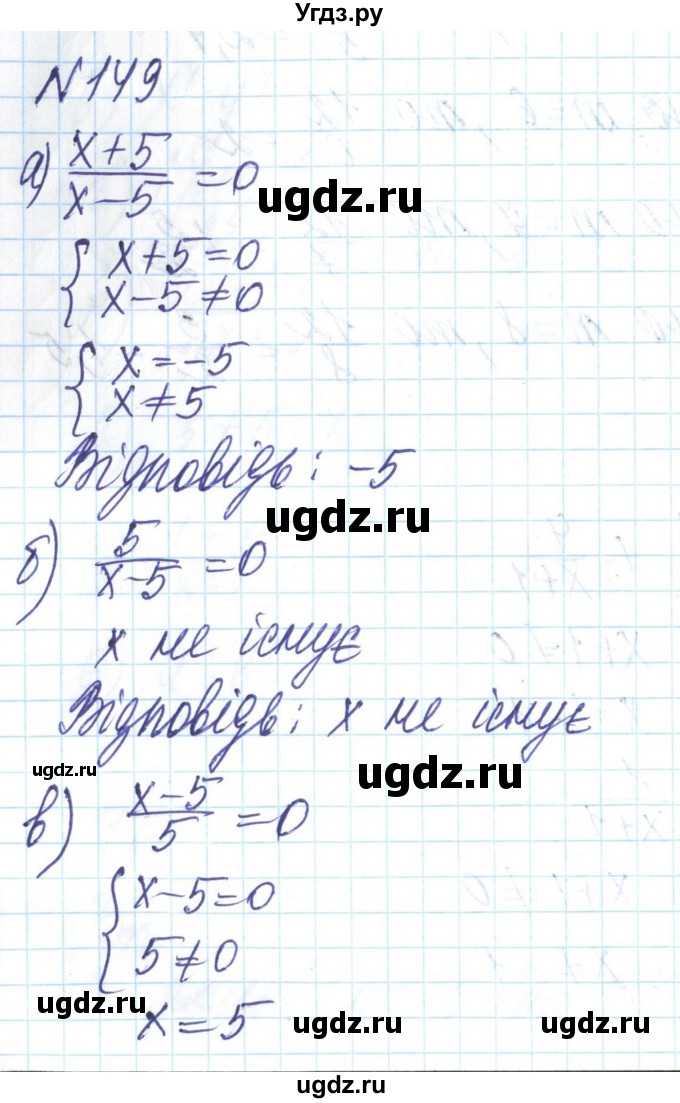 Угдз.ру
N149
а) x+5 / x-5 = 0
ugdz.ru
{ x+5=0
x-5≠0
{ x=-5
x≠5
Відповідь: -5
ugdz.ru
б) 5 / x-5 = 0
x не існує
Відповідь: x не існує
ugdz.ru
ugdz.ru
в) x-5 / 5 = 0
{ x-5=0
5≠0
ugdz.ru
x=5
ugdz.ru
ugdz.ru
ugdz.ru